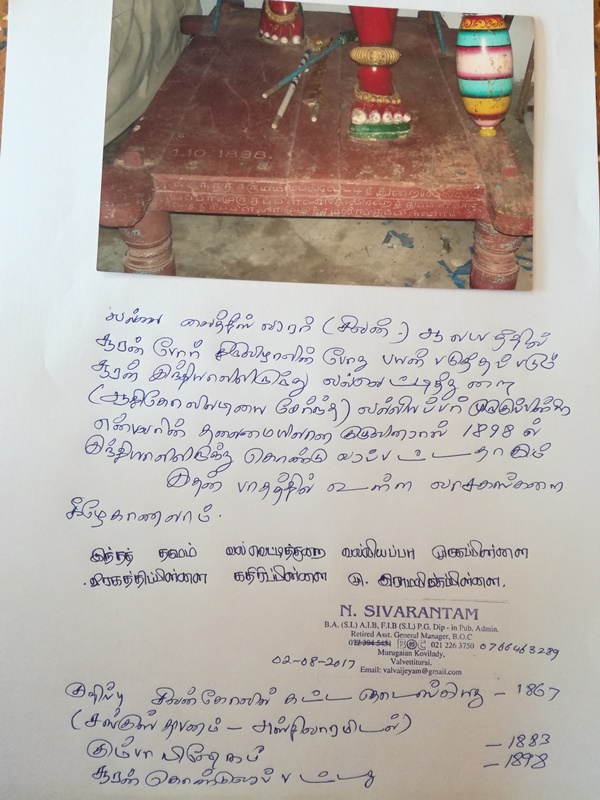 1.10.1898.
வல்வை வைத்தீஸ்வரர் (சிவன்) ஆலயத்தில்
சூரன் போர் திருவிழாவின் போது பயன் படுத்தப் படும்
சூரன் இந்தியாவிலிருந்து வல்வெட்டித்துறை
(ஆதிகோவிலடியை சேர்ந்த) வல்லியப்பா முருகுப்பிள்ளை
என்பவரின் தலைமையிலான குழுவினரால் 1898 ல்
இந்தியாவிலிருந்து கொண்டு வரப்பட்டதாகும்
இதன் பாதத்தில் உள்ள வாசகங்களை
கீழே காணலாம்.
இந்தச் சூரன் வல்வெட்டித்துறை வல்லியப்பா முருகுப்பிள்ளை
கதிரிப்பிள்ளை மு.
N. SIVARANTAM
B.A. (S.L) A.I.B, F.I.B (S.L) P.G. Dip - in Pub. Admin.
Retired Asst. General Manager, B.O.C
021 226 3750 0766463289
Murugaian Kovilady,
Valvettiturai.
02-08-2017
Email: valvaijeyam@gmail.com
குறிப்பு சிவன்கோவில் கட்ட தொடங்கியது - 1867
(சங்குஸ்தாபனம் - அஸ்திவாரமிடல்)
கும்பாபிஷேகம் - 1883
சூரன் கொண்டுவரப்பட்டது - 1898